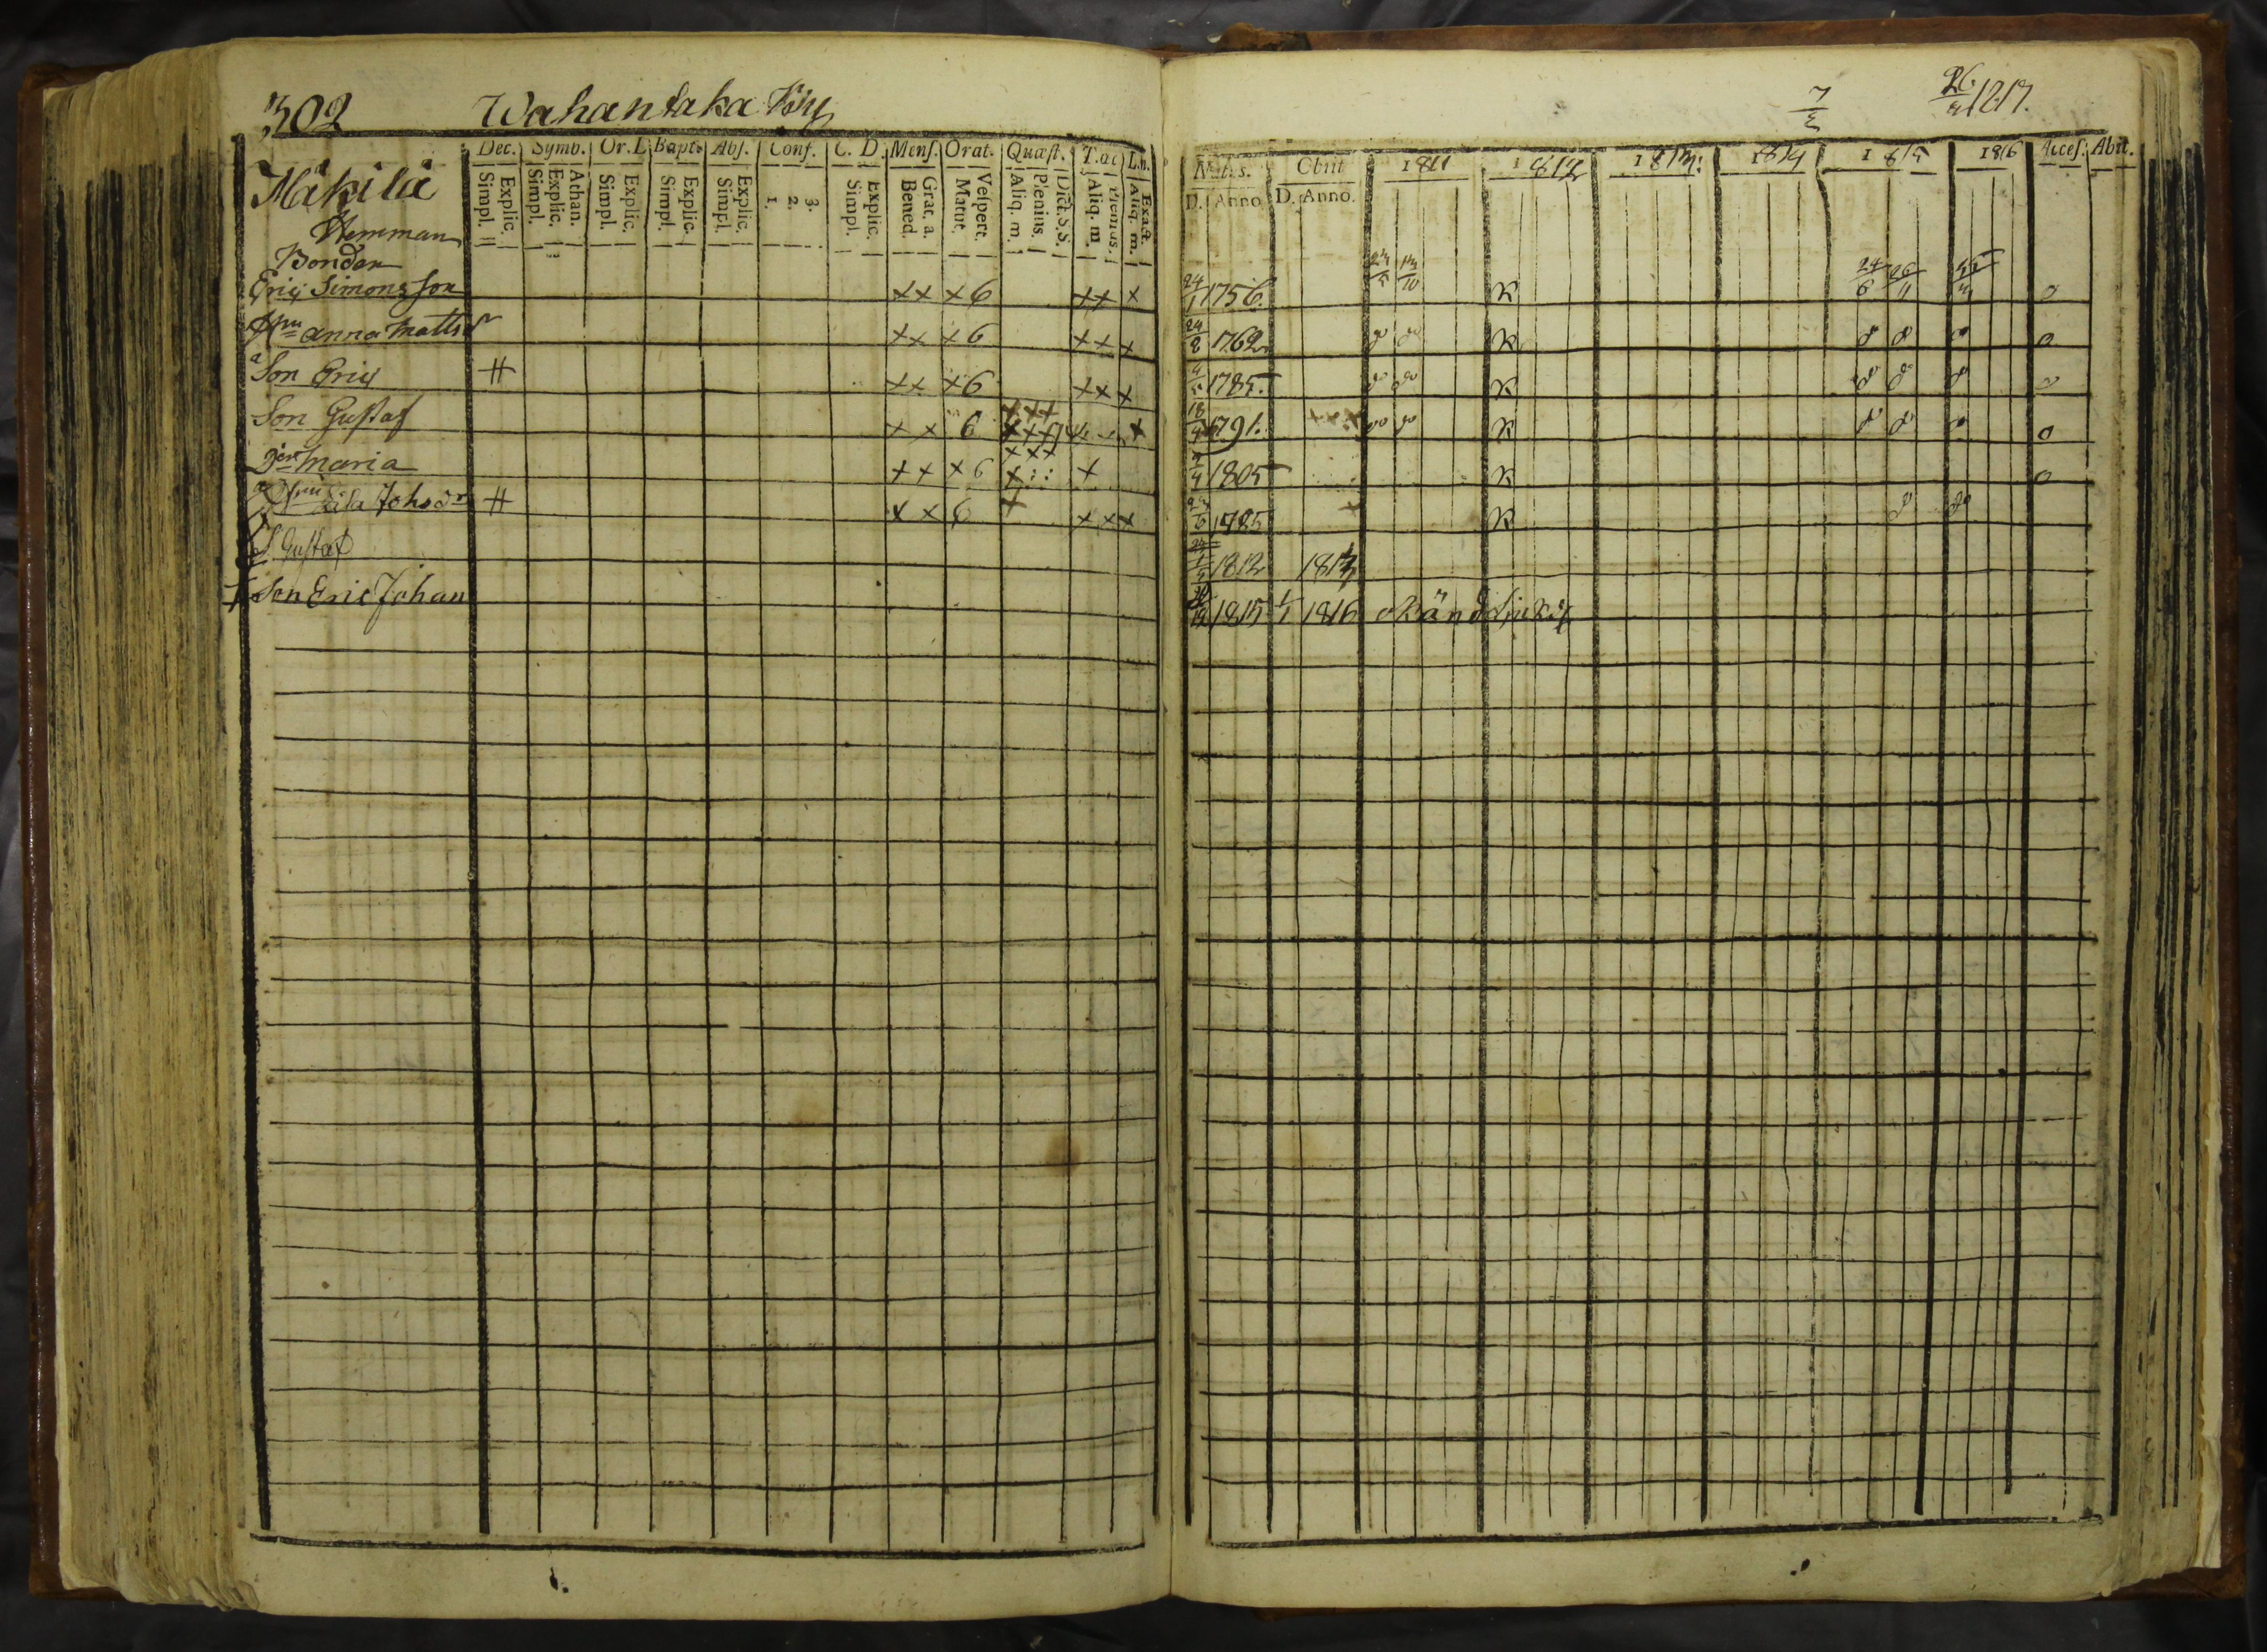 302 Wahantaka By
7/2 26/3 1817.
Dec. Symb. Or. L. Bapt. Abs. Conf. C. D. Mens. Orat. Quæst. T. æc L. n.
Natus. Obiit 1811 1812 1813. 1814 1815 1816 Acces. Abit.
Explic. Simpl. Athan. Explic. Simpl. Explic. Simpl. Explic. Simpl. Explic. Simpl. 3. 2. 1. Explic. Simpl. Grat. a. Bened. Vespert. Matut. Dict. S.S. Plenius. Aliq. m. Plenius. Aliq. m Exact. Aliq. m.
D. Anno D. Anno.
Mäkilä
Hemman
Bonden
Eric Simonsson ×× ×6 ×× × 24/1 1756. K
Hu Anna Mattsdr ×× ×6 ××× 24/8 1762 K
Son Eric ++ ×× ×6 ××× 1785. K
Son Gustaf ×× 6 1791. K
Dr Maria ×× ×6 × 1805 K
Hu Lisa Johsdr ++ ×× 6 ××× 1785 K
S. Gustaf 1812 1813
Son Eric Johan 30/12 1815 1/1 1816 okänd sjukd.